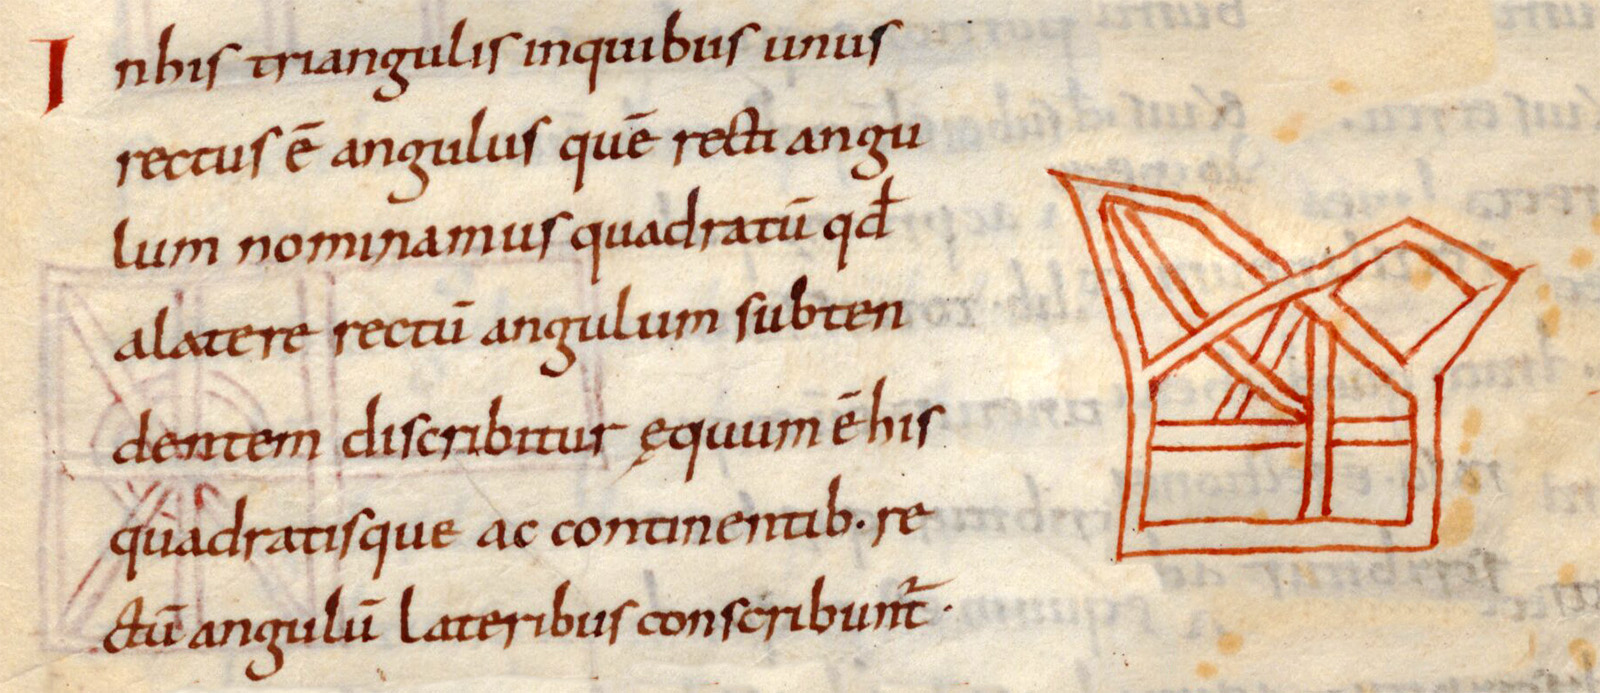 Inhis triangulis inquibus unus
rectus ē angulus quē recti angu
lum nominamus quadratū qđ
alatere rectū angulum subten
dentem discribitur ęquum ē his
quadratisque ac continentib· re
ctū angulū lateribus conscribunt̄·